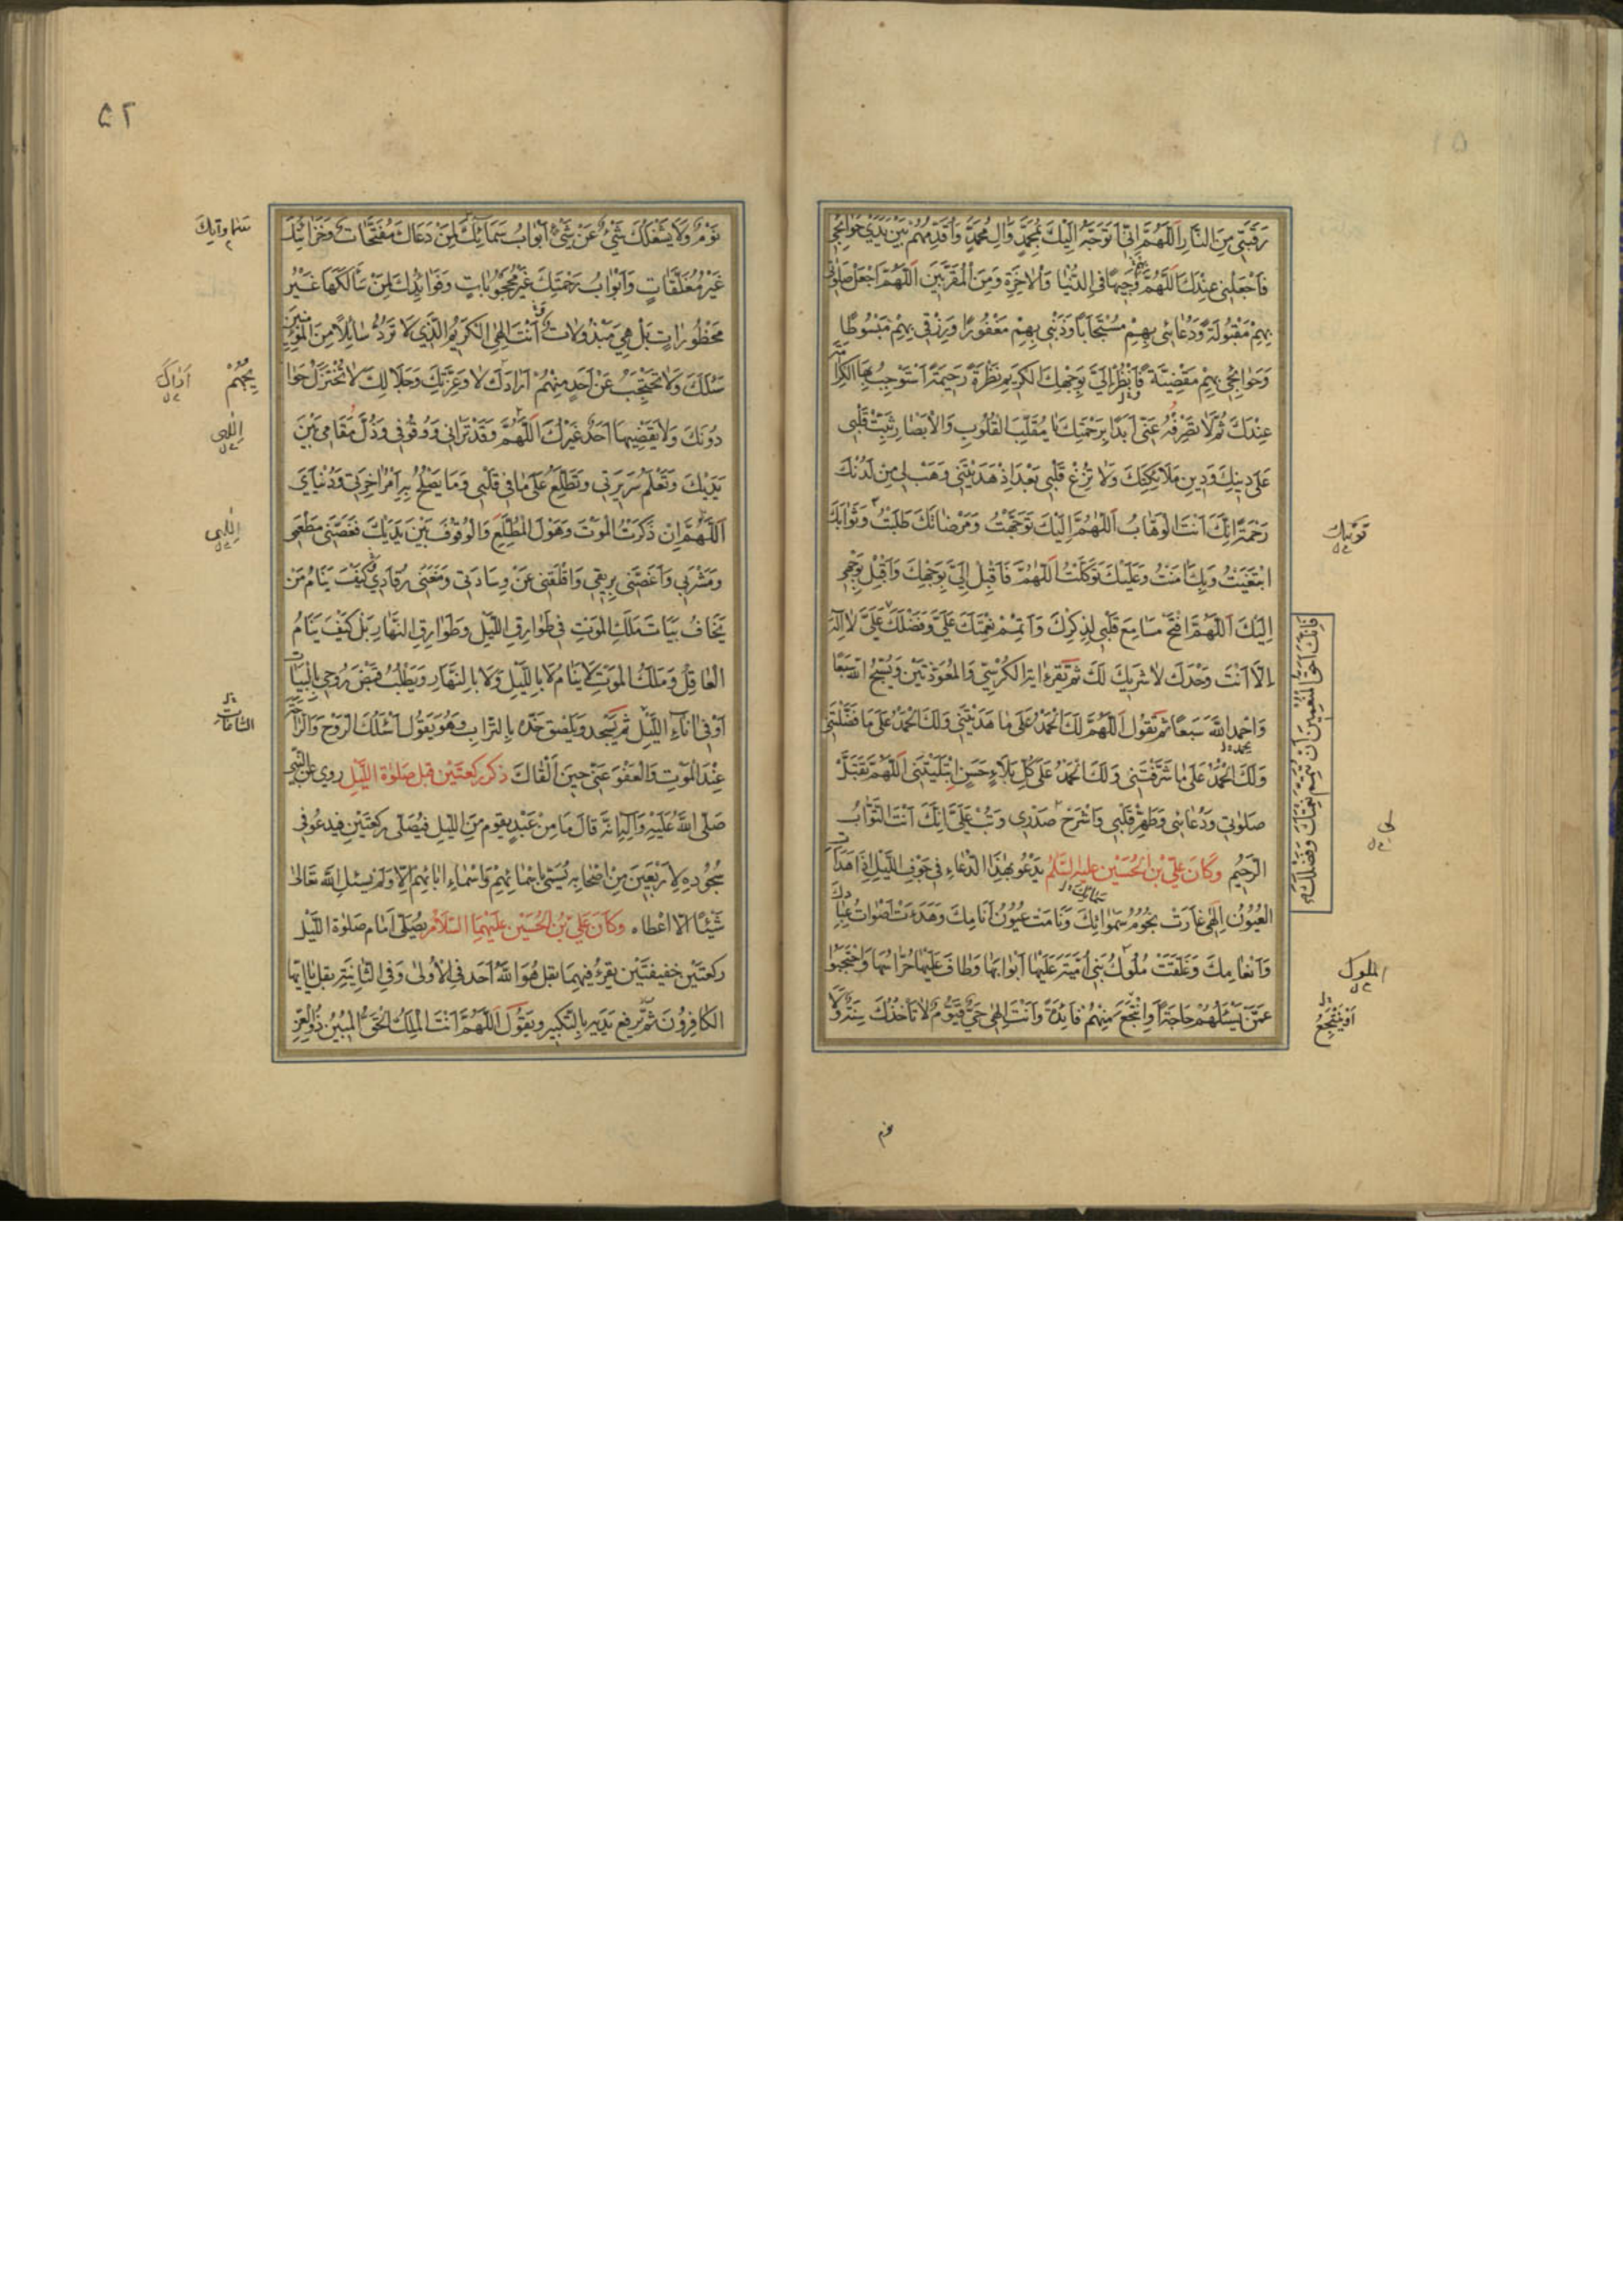 رَقَبَتِي مِنَ النَّارِ اَللّٰهُمَّ اِنّي اَتَوَجَّهُ اِلَيْكَ بِمُحَمَّدٍ وَاٰلِ مُحَمَّدٍ وَاُقَدِّمُهُمْ بَيْنَ يَدَيْ حَوَائِجِي
فَاجْعَلْنِي عِنْدَكَ اَللّٰهُمَّ وَجِيهًا فِي الدُّنْيَا وَالْاٰخِرَةِ وَمِنَ الْمُقَرَّبِينَ اَللّٰهُمَّ اجْعَلْ صَلٰوتِي
بِهِمْ مَقْبُولَةً وَدُعَائِي بِهِمْ مُسْتَجَابًا وَذَنْبِي بِهِمْ مَغْفُورًا وَرِزْقِي بِهِمْ مَبْسُوطًا
وَحَوَائِجِي بِهِمْ مَقْضِيَّةً وَانْظُرْ اِلَيَّ بِوَجْهِكَ الْكَرِيمِ نَظْرَةً رَحِيمَةً اَسْتَوْجِبُ بِهَا الْكَرَامَةَ
عِنْدَكَ ثُمَّ لَا تَصْرِفْهُ عَنِّي اَبَدًا بِرَحْمَتِكَ يَا مُقَلِّبَ الْقُلُوبِ وَالْاَبْصَارِ ثَبِّتْ قَلْبِي
عَلٰى دِينِكَ وَدِينِ مَلَائِكَتِكَ وَلَا تُزِغْ قَلْبِي بَعْدَ اِذْ هَدَيْتَنِي وَهَبْ لِي مِنْ لَدُنْكَ
رَحْمَةً اِنَّكَ اَنْتَ الْوَهَّابُ اَللّٰهُمَّ اِلَيْكَ تَوَجَّهْتُ وَمَرْضَاتَكَ طَلَبْتُ وَثَوَابَكَ
ابْتَغَيْتُ وَبِكَ اٰمَنْتُ وَعَلَيْكَ تَوَكَّلْتُ اَللّٰهُمَّ فَاَقْبِلْ اِلَيَّ بِوَجْهِكَ وَاَقْبِلْ بِوَجْهِي
اِلَيْكَ اَللّٰهُمَّ افْتَحْ مَسَامِعَ قَلْبِي لِذِكْرِكَ وَاَتْمِمْ نِعْمَتَكَ عَلَيَّ وَفَضْلَكَ عَلَيَّ لَا اِلٰهَ
اِلَّا اَنْتَ وَحْدَكَ لَا شَرِيكَ لَكَ ثُمَّ تَقْرَءُ اٰيَةَ الْكُرْسِيِّ وَالْمُعَوَّذَتَيْنِ وَيُسَبِّحُ اللّٰهَ سَبْعًا
وَاحْمَدِ اللّٰهَ سَبْعًا ثُمَّ تَقُولُ اَللّٰهُمَّ لَكَ الْحَمْدُ عَلٰى مَا هَدَيْتَنِي وَلَكَ الْحَمْدُ عَلٰى مَا فَضَّلْتَنِي
وَلَكَ الْحَمْدُ عَلٰى مَا شَرَّفْتَنِي وَلَكَ الْحَمْدُ عَلٰى كُلِّ بَلَاءٍ حَسَنٍ ابْتَلَيْتَنِي اَللّٰهُمَّ تَقَبَّلْ
صَلٰوتِي وَدُعَائِي وَطَهِّرْ قَلْبِي وَاشْرَحْ صَدْرِي وَتُبْ عَلَيَّ اِنَّكَ اَنْتَ التَّوَّابُ
الرَّحِيمُ وَكَانَ عَلِيُّ بْنُ الْحُسَيْنِ عَلَيْهِ السَّلَامُ يَدْعُو بِهٰذَا الدُّعَاءِ فِي جَوْفِ اللَّيْلِ اِذَا هَدَاَتِ
الْعُيُونُ اِلٰهِي غَارَتْ نُجُومُ سَمٰوَاتِكَ وَنَامَتْ عُيُونُ اَنَامِكَ وَهَدَءَتْ اَصْوَاتُ عِبَادِكَ
وَاَنْعَامِكَ وَغَلَّقَتْ مُلُوكُ بَنِي اُمَيَّةَ عَلَيْهَا اَبْوَابَهَا وَطَافَ عَلَيْهَا حُرَّاسُهَا وَاحْتَجَبُوا
عَمَّنْ يَسْئَلُهُمْ حَاجَةً اَوِ انْتَجَعَ مِنْهُمْ فَائِدَةً وَاَنْتَ اِلٰهِي حَيٌّ قَيُّومٌ لَا تَأْخُذُكَ سِنَةٌ وَلَا
فَاِنَّكَ اَحَقُّ الْمُنْعِمِينَ اَنْ تُتِمَّ نِعْمَتَكَ وَفَضْلَكَ
ثَوَابَكَ
لِي
الملوك
اَوْ يَنْتَجِعُ
۵۲
نَوْمٌ وَلَا يَشْغَلُكَ شَيْءٌ عَنْ شَيْءٍ اَبْوَابُ سَمَائِكَ لِمَنْ دَعَاكَ مُفَتَّحَاتٌ وَخَزَائِنُكَ
غَيْرُ مُغَلَّقَاتٍ وَاَبْوَابُ رَحْمَتِكَ غَيْرُ مَحْجُوبَاتٍ وَفَوَائِدُكَ لِمَنْ سَاَلَكَهَا غَيْرُ
مَحْظُورَاتٍ بَلْ هِيَ مَبْذُولَاتٌ اَنْتَ اِلٰهِي الْكَرِيمُ الَّذِي لَا تَرُدُّ سَائِلًا مِنَ الْمُؤْمِنِينَ
سَئَلَكَ وَلَا تَحْتَجِبُ عَنْ اَحَدٍ مِنْهُمْ اَرَادَكَ لَا وَعِزَّتِكَ وَجَلَالِكَ لَا تُخْتَزَلُ حَوَا
دُونَكَ وَلَا يَقْضِيهَا اَحَدٌ غَيْرُكَ اَللّٰهُمَّ وَقَدْ تَرَانِي وَوُقُوفِي وَذُلَّ مَقَامِي بَيْنَ
يَدَيْكَ وَتَعْلَمُ سَرِيرَتِي وَتَطَّلِعُ عَلٰى مَا فِي قَلْبِي وَمَا يَصْلُحُ بِهِ اَمْرُ اٰخِرَتِي وَدُنْيَايَ
اَللّٰهُمَّ اِنْ ذَكَرْتُ الْمَوْتَ وَهَوْلَ الْمُطَّلَعِ وَالْوُقُوفَ بَيْنَ يَدَيْكَ نَغَّصَنِي مَطْعَمِي
وَمَشْرَبِي وَاَغَصَّنِي بِرِيقِي وَاَقْلَقَنِي عَنْ وِسَادَتِي وَمَنَعَنِي رُقَادِي كَيْفَ يَنَامُ مَنْ
يَخَافُ بَيَاتَ مَلَكِ الْمَوْتِ فِي طَوَارِقِ اللَّيْلِ وَطَوَارِقِ النَّهَارِ بَلْ كَيْفَ يَنَامُ
الْعَاقِلُ وَمَلَكُ الْمَوْتِ لَا يَنَامُ لَا بِاللَّيْلِ وَلَا بِالنَّهَارِ وَيَطْلُبُ قَبْضَ رُوحِي بِالْبَيَاتِ
اَوْ فِي اٰنَاءِ اللَّيْلِ ثُمَّ يَسْجُدُ وَيُلْصِقُ خَدَّهُ بِالتُّرَابِ وَهُوَ يَقُولُ اَسْئَلُكَ الرَّوْحَ وَالرَّاحَةَ
عِنْدَ الْمَوْتِ وَالْعَفْوَ عَنِّي حِينَ اَلْقَاكَ ذكر ركعتين قبل صلوة الليل روي عن النبي
صَلَّى اللّٰهُ عَلَيْهِ وَاٰلِهِ اَنَّهُ قَالَ مَا مِنْ عَبْدٍ يَقُومُ مِنَ اللَّيْلِ فَيُصَلِّي رَكْعَتَيْنِ فَيَدْعُو فِي
سُجُودِهِ لِاَرْبَعِينَ مِنْ اَصْحَابِهِ يُسَمِّي بِاَسْمَائِهِمْ وَاَسْمَاءِ اٰبَائِهِمْ اِلَّا وَلَمْ يَسْئَلِ اللّٰهَ تَعَالٰى
شَيْئًا اِلَّا اَعْطَاهُ وَكَانَ عَلِيُّ بْنُ الْحُسَيْنِ عَلَيْهِمَا السَّلَامُ يُصَلِّي اَمَامَ صَلٰوةِ اللَّيْلِ
رَكْعَتَيْنِ خَفِيفَتَيْنِ يَقْرَءُ فِيهِمَا بِقُلْ هُوَ اللّٰهُ اَحَدٌ فِي الْاُولٰى وَفِي الثَّانِيَةِ بِقُلْ يَا اَيُّهَا
الْكَافِرُونَ ثُمَّ يَرْفَعُ يَدَيْهِ بِالتَّكْبِيرِ وَيَقُولُ اَللّٰهُمَّ اَنْتَ الْمَلِكُ الْحَقُّ الْمُبِينُ ذُو الْعِزِّ
سَمَاوَاتِكَ
اَرَادَكَ
اِلٰهِي
اِلٰهِي